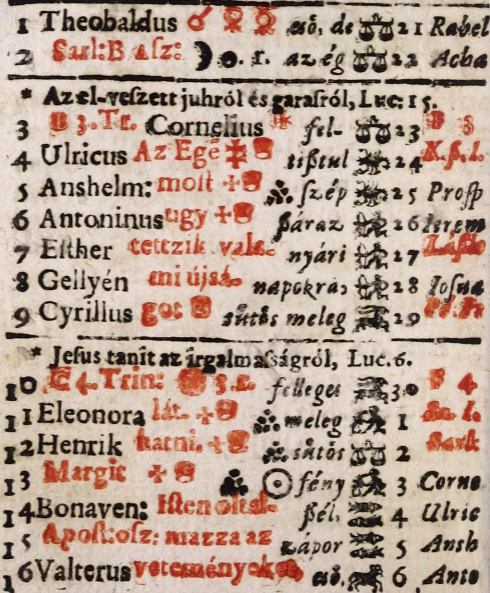 1 Theobaldus ☌ ♀ ☿ eső, de 21 Rabel
2 Sarl:B Aſz: ☽ 0. 1. az ég 22 Acha
* Az el-veſzett juhról és garaſról, Luc: 15.
3 D 3. Tr. Cornelius fel- 23 8
4 Ulricus Az Egé tißtul 24
5 Anshelm: moſt ſzép 25 Proſp
6 Antoninus ugy ßáraz 26 Ierem
7 Eſther tettzik vala- nyári 27
8 Gellyén mi újsá- napokra, 28 Ioſua
9 Cyrillus got sűtős meleg 29
* Jeſus tanit az irgalmaſságról, Luc. 6.
10 C 4. Trin: felleges 30 4
11 Eleonora lát. meleg 1
12 Henrik hatni. sűtös 2
13 Margit ☉ fény 3 Corne
14 Bonaven: Iſten óltal- ßél, 4 Ulric
15 Apoſt: oſz: mazza az zápor 5 Ansh
16 Valterus veteményeke eső. 6 Anto